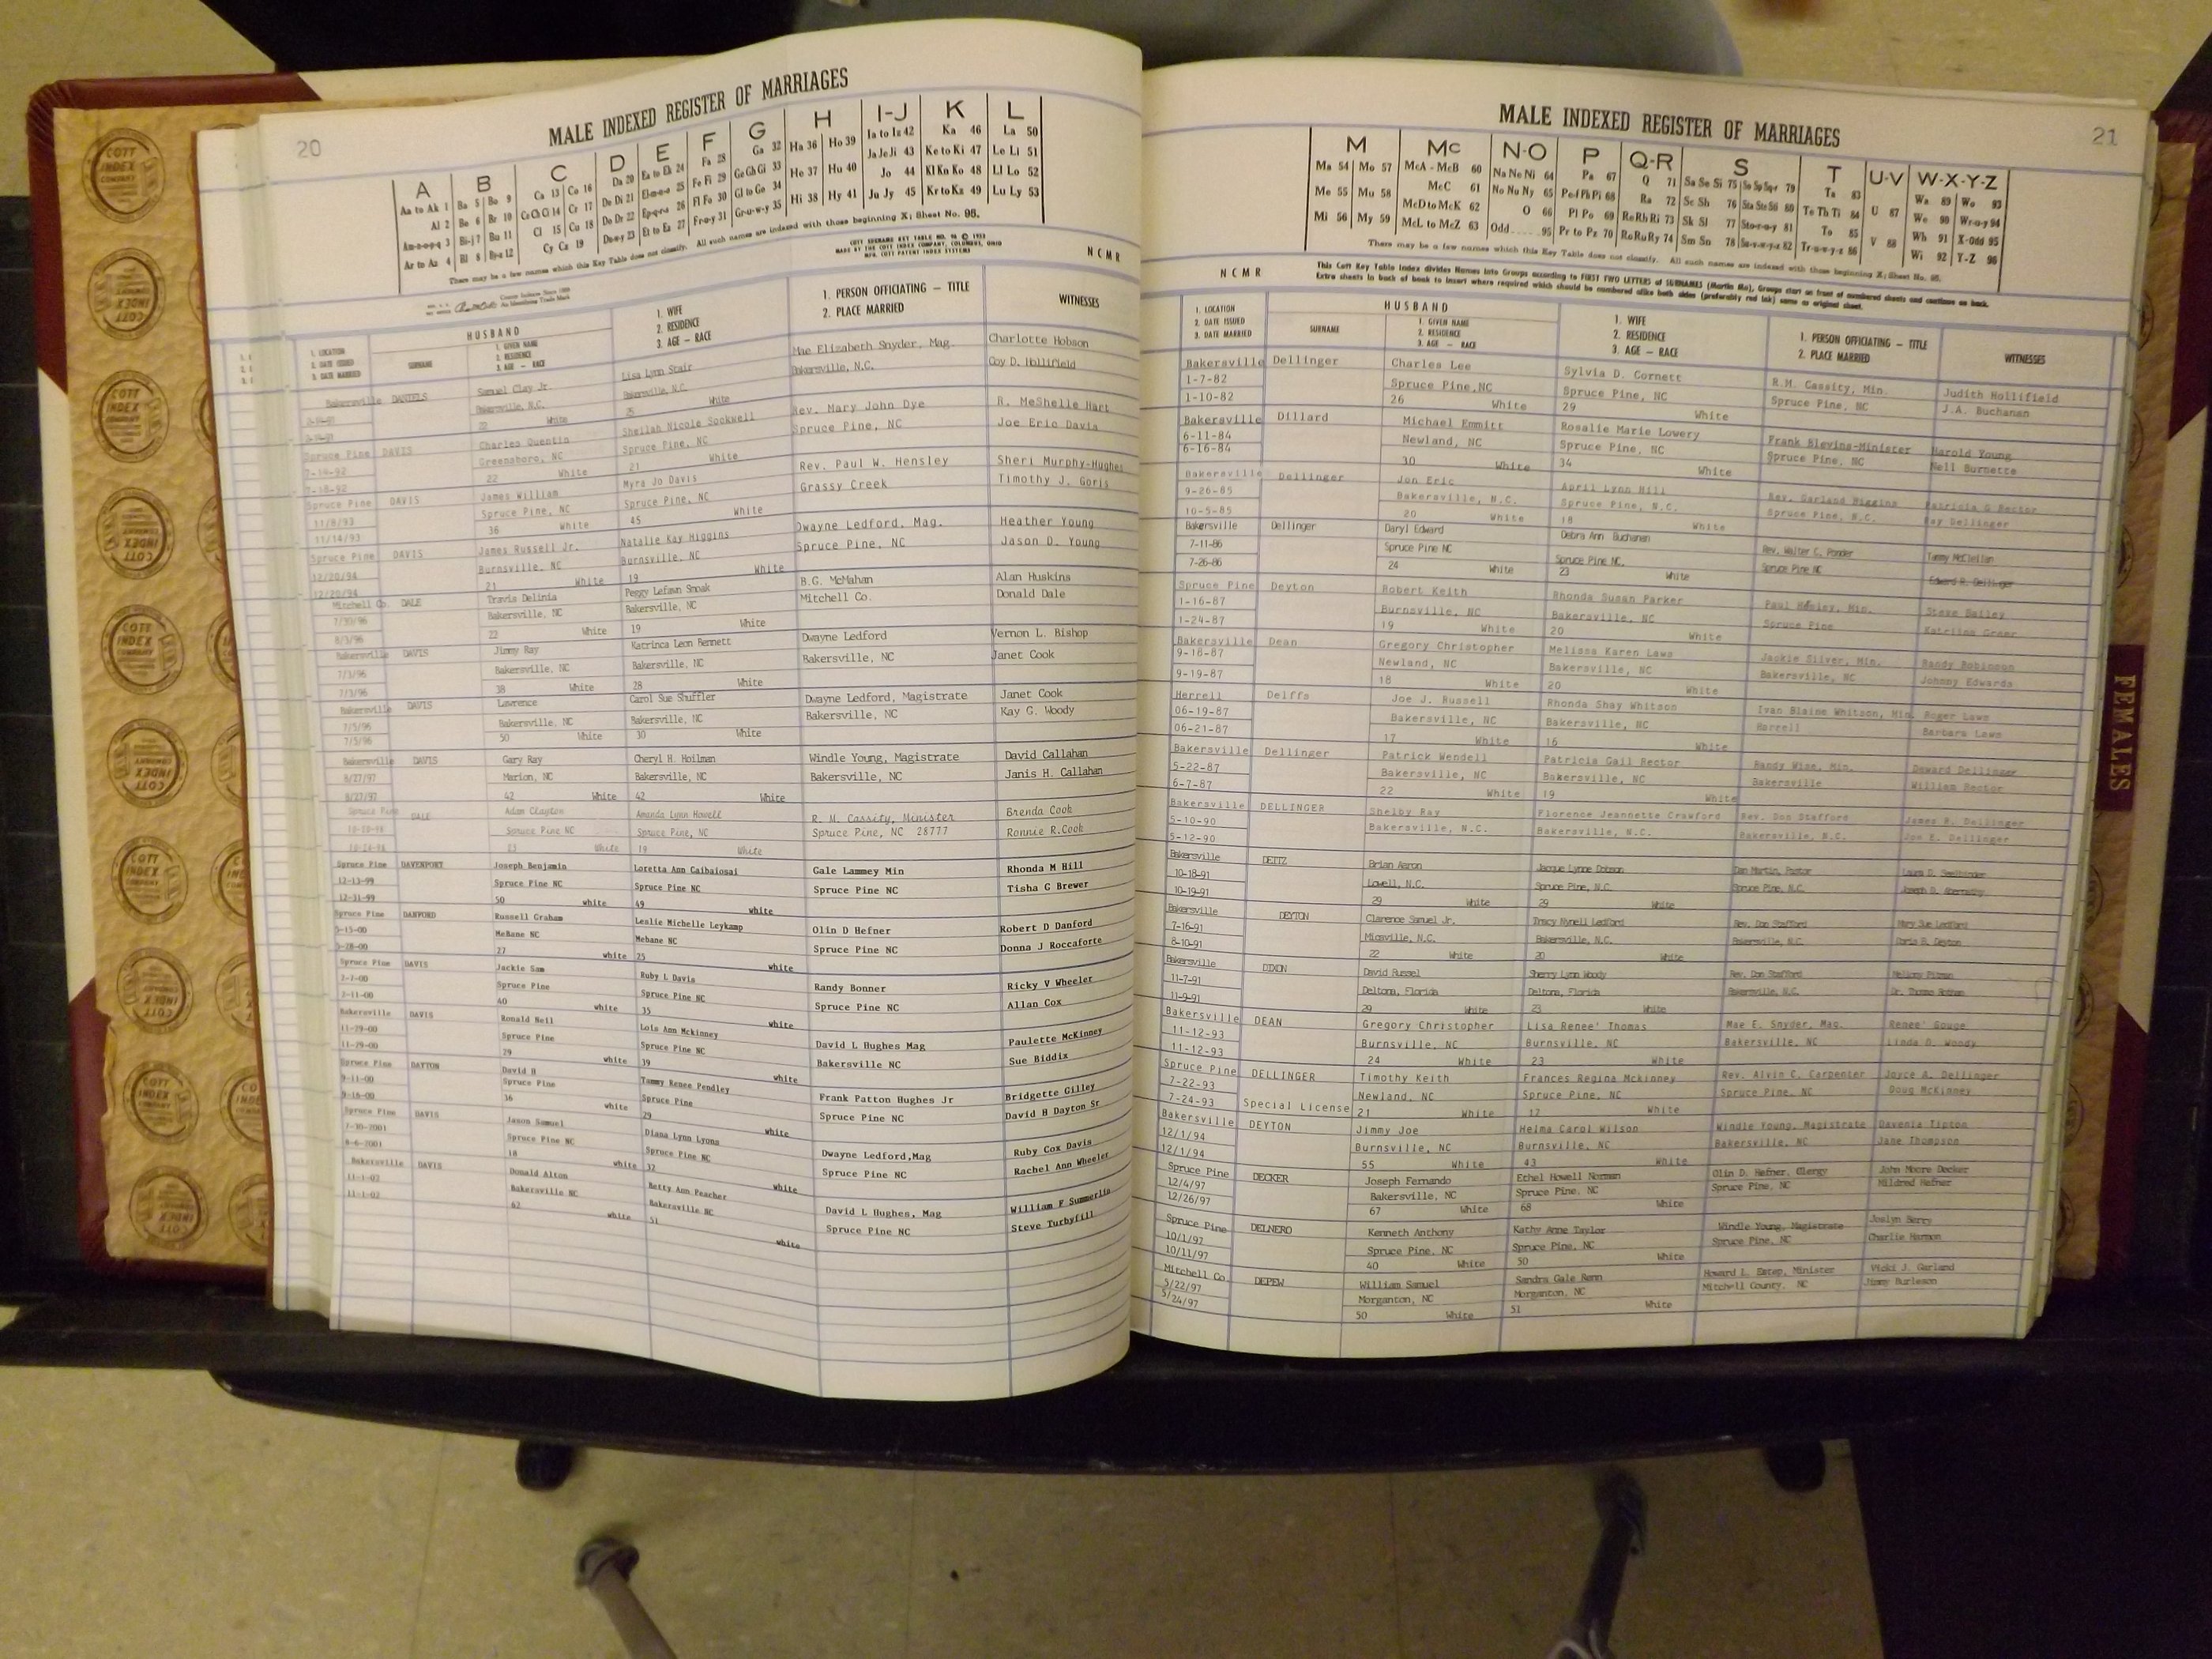 20
MALE INDEXED REGISTER OF MARRIAGES
A B C D E F G H I-J K L
Aa to Ak 1 Ba 5 Bo 9 Ca 13 Co 16 Da 20 Ea to Ek 24 Fa 28 Ga 32 Ha 36 Ho 39 Ia to Iz 42 Ka 46 La 50
Al 2 Be 6 Br 10 Ce Ch Ci 14 Cr 17 De Di 21 El-m-n-o 25 Fe Fi 29 Ge Gh Gi 33 He 37 Hu 40 Ja Je Ji 43 Ke to Ki 47 Le Li 51
Am-n-o-p-q 3 Bi-j 7 Bu 11 Cl 15 Cu 18 Do Dr 22 Ep-q-r-s 26 Fl Fo 30 Gl to Go 34 Hi 38 Hy 41 Jo 44 Kl Kn Ko 48 Ll Lo 52
Ar to Az 4 Bl 8 By-z 12 Cy Cz 19 Du-w-y 23 Et to Ez 27 Fr-u-y 31 Gr-u-w-y 35 Ju Jy 45 Kr to Kz 49 Lu Ly 53
There may be a few names which this Key Table does not classify. All such names are indexed with those beginning X; Sheet No. 95.
NCMR
HUSBAND
1. LOCATION 2. DATE ISSUED 3. DATE MARRIED
SURNAME
1. GIVEN NAME 2. RESIDENCE 3. AGE – RACE
1. WIFE 2. RESIDENCE 3. AGE – RACE
1. PERSON OFFICIATING – TITLE 2. PLACE MARRIED
WITNESSES
Bakersville DANIELS Samuel Clay Jr. Lisa Lynn Stair Mae Elizabeth Snyder, Mag. Charlotte Hobson
Bakersville, N.C. Bakersville, N.C. Bakersville, N.C. Coy D. Hollifield
White 25 White
Spruce Pine DAVIS Charles Quentin Sheilah Nicole Sockwell Rev. Mary John Dye R. MeShelle Hart
7-14-92 Greensboro, NC Spruce Pine, NC Spruce Pine, NC Joe Eric Davis
7-18-92 22 White 21 White
Spruce Pine DAVIS James William Myra Jo Davis Rev. Paul W. Hensley Sheri Murphy-Hughes
11/8/93 Spruce Pine, NC Spruce Pine, NC Grassy Creek Timothy J. Goris
11/14/93 36 White 45 White
Spruce Pine DAVIS James Russell Jr. Natalie Kay Higgins Dwayne Ledford. Mag. Heather Young
12/20/94 Burnsville, NC Burnsville, NC Spruce Pine, NC Jason D. Young
12/20/94 21 White 19 White
Mitchell Co. DALE Travis Delinia Peggy LeFawn Smoak B.G. McMahan Alan Huskins
7/30/96 Bakersville, NC Bakersville, NC Mitchell Co. Donald Dale
8/3/96 22 White 19 White
Bakersville DAVIS Jimmy Ray Katrinca Leon Bennett Dwayne Ledford Vernon L. Bishop
7/3/96 Bakersville, NC Bakersville, NC Bakersville, NC Janet Cook
7/3/96 38 White 28 White
Bakersville DAVIS Lawrence Carol Sue Shuffler Dwayne Ledford, Magistrate Janet Cook
7/5/96 Bakersville, NC Bakersville, NC Bakersville, NC Kay G. Woody
7/5/96 50 White 30 White
Bakersville DAVIS Gary Ray Cheryl H. Hoilman Windle Young, Magistrate David Callahan
8/27/97 Marion, NC Bakersville, NC Bakersville, NC Janis H. Callahan
8/27/97 42 White 42 White
Spruce Pine DALE Adam Clayton Amanda Lynn Howell R. M. Cassity, Minister Brenda Cook
Spruce Pine NC Spruce Pine, NC Spruce Pine, NC 28777 Ronnie R.Cook
23 White 19 White
Spruce Pine DAVENPORT Joseph Benjamin Loretta Ann Caibaiosai Gale Lammey Min Rhonda M Hill
12-13-99 Spruce Pine NC Spruce Pine NC Spruce Pine NC Tisha G Brewer
12-31-99 50 white 49 white
Spruce Pine DANFORD Russell Graham Leslie Michelle Leykamp Olin D Hefner Robert D Danford
5-15-00 Mebane NC Mebane NC Spruce Pine NC Donna J Roccaforte
5-28-00 27 white 25 white
Spruce Pine DAVIS Jackie Sam Ruby L Davis Randy Bonner Ricky V Wheeler
2-7-00 Spruce Pine Spruce Pine NC Spruce Pine NC Allan Cox
2-11-00 40 white 35 white
Bakersville DAVIS Ronald Neil Lois Ann Mckinney David L Hughes Mag Paulette McKinney
11-29-00 Spruce Pine Spruce Pine NC Bakersville NC Sue Biddix
11-29-00 29 white 39 white
Spruce Pine DAYTON David H Tammy Renee Pendley Frank Patton Hughes Jr Bridgette Gilley
9-11-00 Spruce Pine Spruce Pine Spruce Pine NC David H Dayton Sr
9-16-00 36 white 29 white
Spruce Pine DAVIS Jason Samuel Diana Lynn Lyons Dwayne Ledford,Mag Ruby Cox Davis
7-30-2001 Spruce Pine NC Spruce Pine NC Spruce Pine NC Rachel Ann Wheeler
8-4-2001 18 white 32 white
Bakersville DAVIS Donald Alton Betty Ann Peacher David L Hughes, Mag William F Summerlin
11-1-02 Bakersville NC Bakersville NC Spruce Pine NC Steve Turbyfill
11-1-02 62 white 51 white
21
MALE INDEXED REGISTER OF MARRIAGES
M Mc N-O P Q-R S T U-V W-X-Y-Z
Ma 54 Mo 57 McA - McB 60 Na Ne Ni 64 Pa 67 Q 71 Sa Se Si 75 So Sp Sq-r 79 Ta 83 U 87 Wa 89 Wo 93
Me 55 Mu 58 McC 61 No Nu Ny 65 Pe-f Ph Pi 68 Ra 72 Sc Sh 76 Sta Ste Sti 80 Te Th Ti 84 V 88 We 90 Wr-u-y 94
Mi 56 My 59 McD to McK 62 O 66 Pl Po 69 Re Rh Ri 73 Sk Sl 77 Sto-r-u-y 81 To 85 Wh 91 X-Odd 95
McL to McZ 63 Odd 95 Pr to Pz 70 Ro Ru Ry 74 Sm Sn 78 Su-v-w-y-z 82 Tr-u-w-y-z 86 Wi 92 Y-Z 96
There may be a few names which this Key Table does not classify. All such names are indexed with those beginning X; Sheet No. 95.
This Cott Key Table Index divides Names into Groups according to FIRST TWO LETTERS of SURNAMES (Martin Ma), Groups start on front of numbered sheets and continue on back.
Extra sheets in back of book to insert where required which should be numbered alike both sides (preferably red ink) same as original sheet.
NCMR
HUSBAND
1. LOCATION 2. DATE ISSUED 3. DATE MARRIED
SURNAME
1. GIVEN NAME 2. RESIDENCE 3. AGE – RACE
1. WIFE 2. RESIDENCE 3. AGE – RACE
1. PERSON OFFICIATING – TITLE 2. PLACE MARRIED
WITNESSES
Bakersville Dellinger Charles Lee Sylvia D. Cornett R.M. Cassity, Min. Judith Hollifield
1-7-82 Spruce Pine,NC Spruce Pine, NC Spruce Pine, NC J.A. Buchanan
1-10-82 26 White 29 White
Bakersville Dillard Michael Emmitt Rosalie Marie Lowery Frank Blevins-Minister Harold Young
6-11-84 Newland, NC Spruce Pine, NC Spruce Pine, NC Nell Burnette
6-16-84 30 White 34 White
Bakersville Dellinger Jon Eric April Lynn Hill Rev. Garland Higgins Patricia G Rector
9-26-85 Bakersville, N.C. Spruce Pine, N.C. Spruce Pine, N.C. Ray Dellinger
10-5-85 20 White 18 White
Bakersville Dellinger Daryl Edward Debra Ann Buchanan Rev. Walter C. Ponder Tammy McClellan
7-11-86 Spruce Pine NC Spruce Pine NC. Spruce Pine NC Edward R. Dellinger
7-26-86 24 White 23 White
Spruce Pine Deyton Robert Keith Rhonda Susan Parker Paul Min. Steve Bailey
1-16-87 Burnsville, NC Bakersville, NC Spruce Pine
1-24-87 19 White 20 White
Bakersville Dean Gregory Christopher Melissa Karen Laws Jackie Silver, Min. Randy Robinson
9-18-87 Newland, NC Bakersville, NC Bakersville, NC Johnny Edwards
9-19-87 18 White 20 White
Herrell Delffs Joe J. Russell Rhonda Shay Whitson Ivan Blaine Whitson, Min. Roger Laws
06-19-87 Bakersville, NC Bakersville, NC Harrell Barbara Laws
06-21-87 17 White 16 White
Bakersville Dellinger Patrick Wendell Patricia Gail Rector Randy Wise, Min. Deward Dellinger
5-22-87 Bakersville, NC Bakersville, NC Bakersville William Rector
6-7-87 22 White 19 White
Bakersville DELLINGER Shelby Ray Florence Jeannette Crawford Rev. Don Stafford James R. Dellinger
5-10-90 Bakersville, N.C. Bakersville, N.C. Bakersville, N.C. Joe E. Dellinger
5-12-90
Bakersville DEITZ Brian Aaron Jacque Lynne Dobson Dan Martin, Pastor
10-18-91 Lowell, N.C. Spruce Pine, N.C. Spruce Pine, N.C. Joseph D. Abernathy
10-19-91 29 White 29 White
Bakersville DEYTON Clarence Samuel Jr. Tracy Nynell Ledford Rev. Don Stafford Mary Sue Ledford
7-16-91 Micaville, N.C. Bakersville, N.C. Bakersville, N.C. Doris B. Deyton
8-10-91 22 White 20 White
Bakersville DIXON David Russel Sherry Lynn Woody Rev. Don Stafford Mellony Pitman
11-7-91 Deltona, Florida Deltona, Florida Bakersville, N.C.
11-9-91 29 White 23 White
Bakersville DEAN Gregory Christopher Lisa Renee' Thomas Mae E. Snyder, Mag. Renee' Gouge
11-12-93 Burnsville, NC Burnsville, NC Bakersville, NC Linda D. Woody
11-12-93 24 White 23 White
Spruce Pine DELLINGER Timothy Keith Frances Regina Mckinney Rev. Alvin C. Carpenter Joyce A. Dellinger
7-22-93 Newland, NC Spruce Pine, NC Spruce Pine, NC Doug McKinney
7-24-93 Special License 21 White 12 White
Bakersville DEYTON Jimmy Joe Helma Carol Wilson Windle Young, Magistrate Davenia Tipton
12/1/94 Burnsville, NC Burnsville, NC Bakersville, NC Jane Thompson
12/1/94 55 White 43 White
Spruce Pine DECKER Joseph Fernando Ethel Howell Norman Olin D. Hefner, Clergy John Moore Decker
12/4/97 Bakersville, NC Spruce Pine, NC Spruce Pine, NC Mildred Hefner
12/26/97 67 White 68 White
Spruce Pine DELNERO Kenneth Anthony Kathy Anne Taylor Windle Young, Magistrate Joslyn Berry
10/1/97 Spruce Pine, NC Spruce Pine, NC Spruce Pine, NC Charlie Harmon
10/11/97 40 White 50 White
Mitchell Co. DEPEW William Samuel Sandra Gale Renn Howard L. Estep, Minister Vicki J. Garland
5/22/97 Morganton, NC Morganton, NC Mitchell County, NC Jimmy Burleson
5/24/97 50 White 51 White
FEMALES
COTT INDEX COMPANY